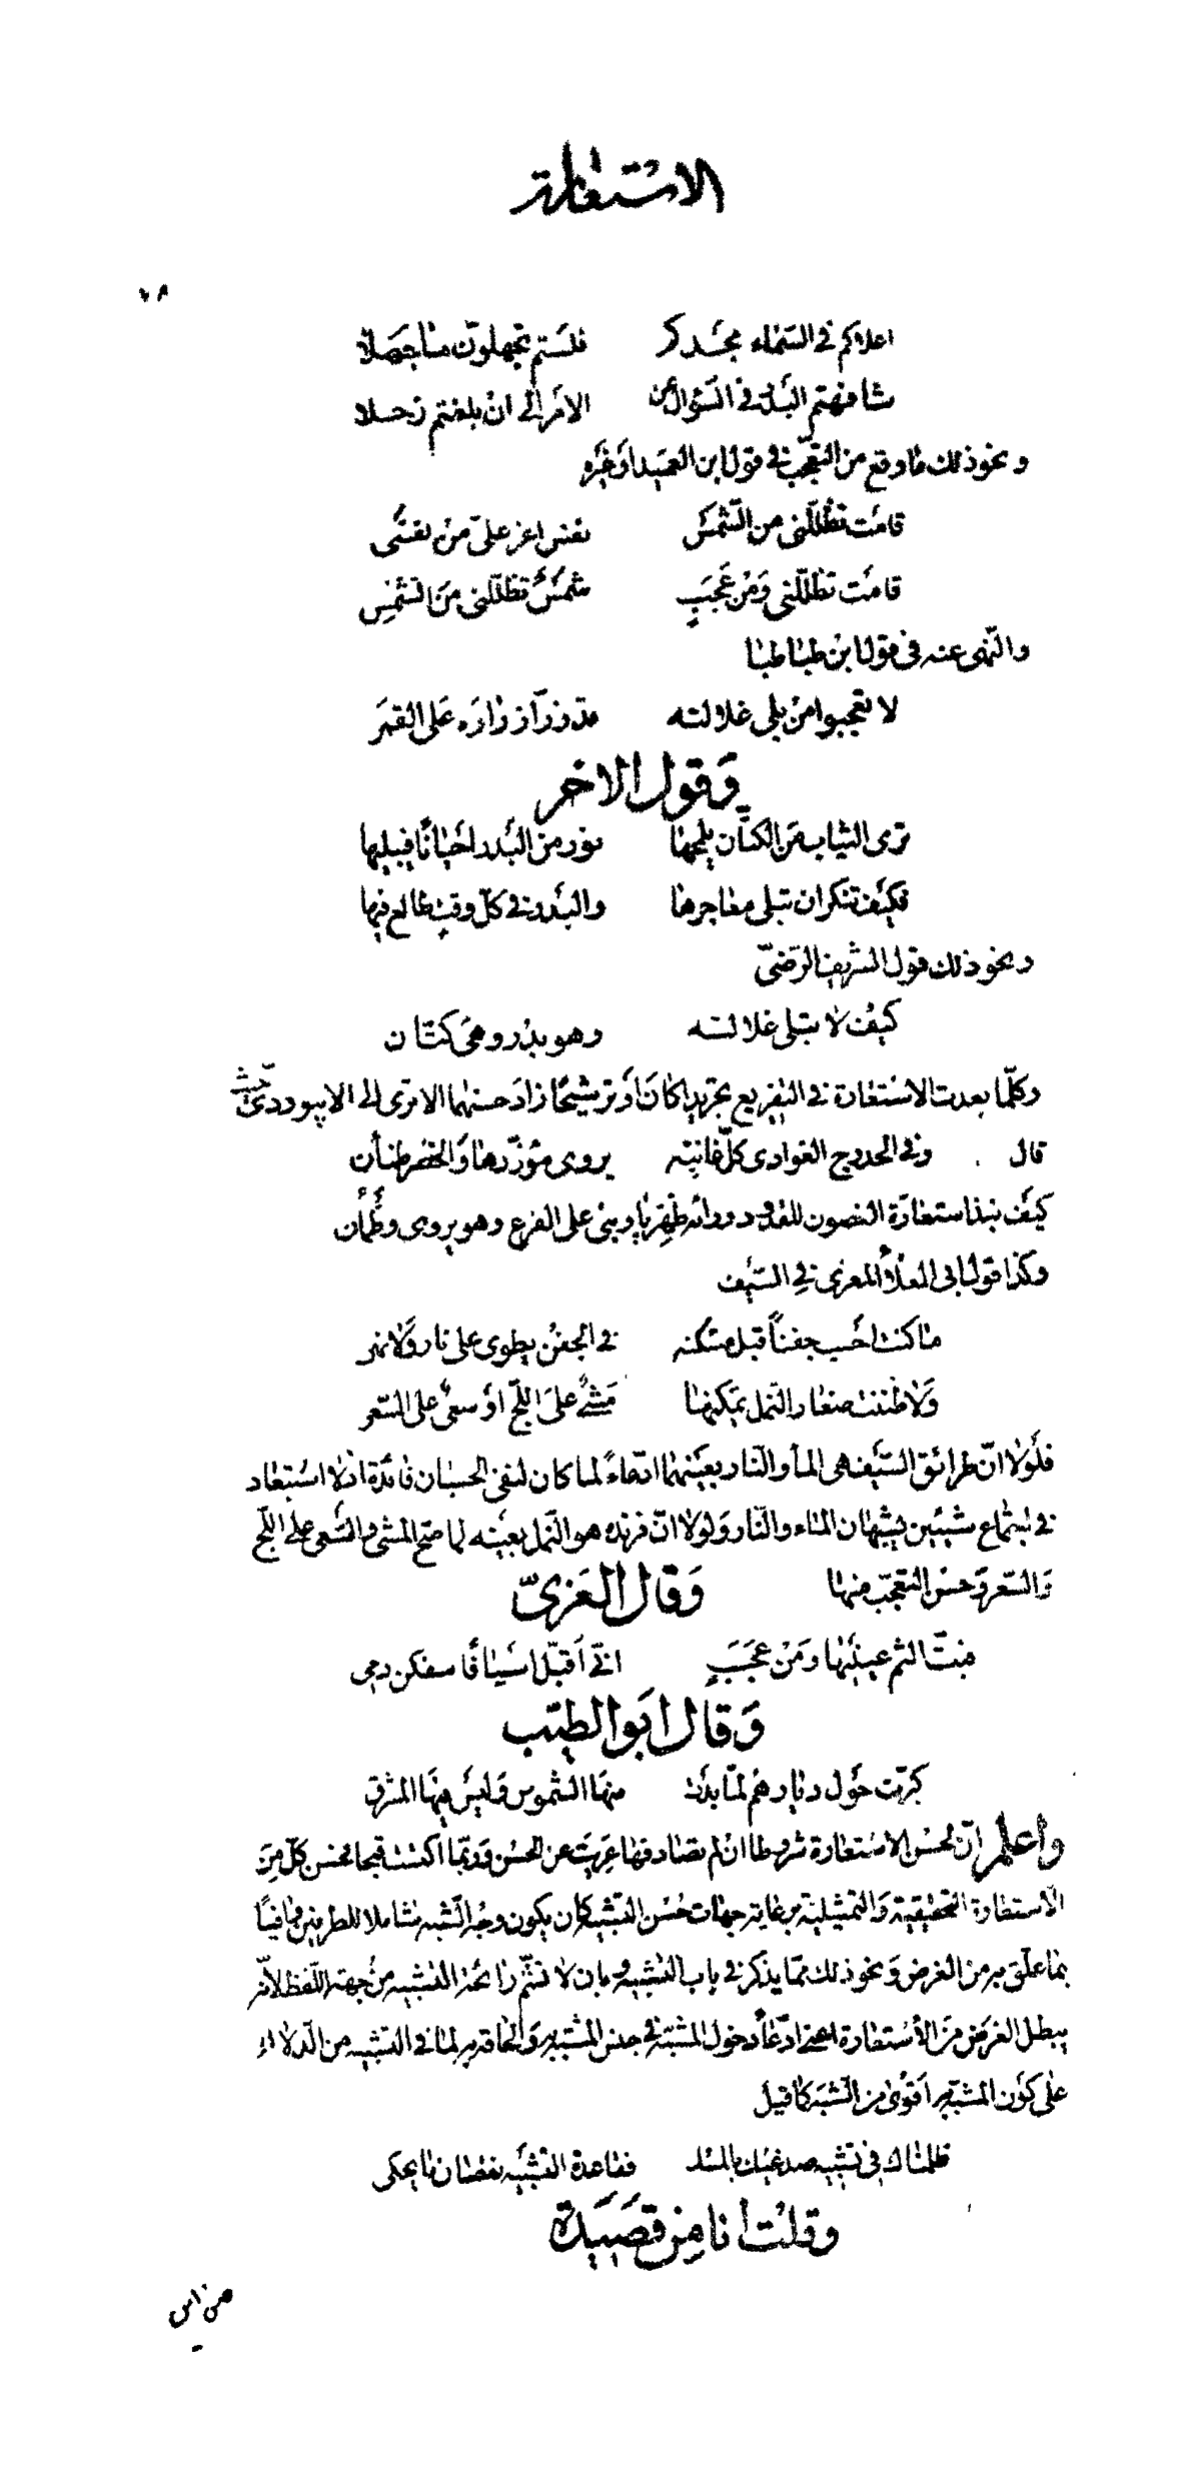 الاستعارة
٧٨
اعلاكم في السماء مجدكم فلستم تجهلون ما جهلا
شافهتم البدر في السؤال عن الامر الى ان بلغتم زحلا
ونحو ذلك ما وقع من التعجب في قول ابن العميد او غيره
قامت تظللني من الشمس نفس اعز علي من نفسي
قامت تظللني ومن عجب شمس تظللني من الشمس
والنهى عنه في قول ابن طباطبا
لا تعجبوا من بلى غلالته قد زر ازراره على القمر
وقول الاخر
ترى الثياب من الكتان يلمحها نور من البدر احيانا فيبليها
فكيف تنكر ان تبلى معاجرها والبدر في كل وقت طالع فيها
ونحو ذلك قول الشريف الرضي
كيف لا تبلى غلالته وهو بدر وهي كتان
وكلما بعدت الاستعارة في التفريع تجريدا كان او ترشيحا زاد حسنها الا ترى الى الابيوردي حيث
قال وفي الحدوج الغوادي كل غانية يروى مؤزرها والخصر ظمآن
كيف نبذ استعارة الغصون للقدود وراءه ظهريا وبنى على الفرع وهو يروى وظمآن
وكذا قول ابي العلاء المعرى في السيف
ما كنت احسب جفنا قبل مسكنه في الجفن يطوى على نار ولا نهر
ولا ظننت صغار النمل يمكنها مشي على اللج او سعي على السعر
فلولا ان طرائق السيف هي الماء والنار بعينهما ادعاء لما كان لنفي الحسبان فائدة اذ لا استبعاد
في اجتماع شيئين يشبهان الماء والنار ولولا ان فرنده هو النمل بعينه لما صح المشي والسعي على اللج
والسعر وحسن التعجب منها وقال الغزي
فبت الثم عينيها ومن عجب اني اقبل اسيافا سفكن دمي
وقال ابو الطيب
كبرت حول ديارهم لما بدت منها الشموس وليس فيها المشرق
واعلم ان لحسن الاستعارة شروطا ان لم تصادفها عريت عن الحسن وربما اكتست قبحا فحسن كل من
الاستعارة التحقيقية والتمثيلية برعاية جهات حسن التشبيه كان يكون وجه الشبه شاملا للطرفين وافيا
بما علق به من الغرض ونحو ذلك مما يذكر في باب التشبيه وبان لا تشم رائحة التشبيه من جهة اللفظ لانه
يبطل الغرض من الاستعارة اعني ادعاء دخول المشبه في جنس المشبه به والحاقه به لما في التشبيه من الدلالة
على كون المشبه به اقوى من الشبه كما قيل
ظلمناك في تشبيه صدغيك بالمسك فقاعدة التشبيه نقصان ما يحكى
وقلت انا من قصيدة